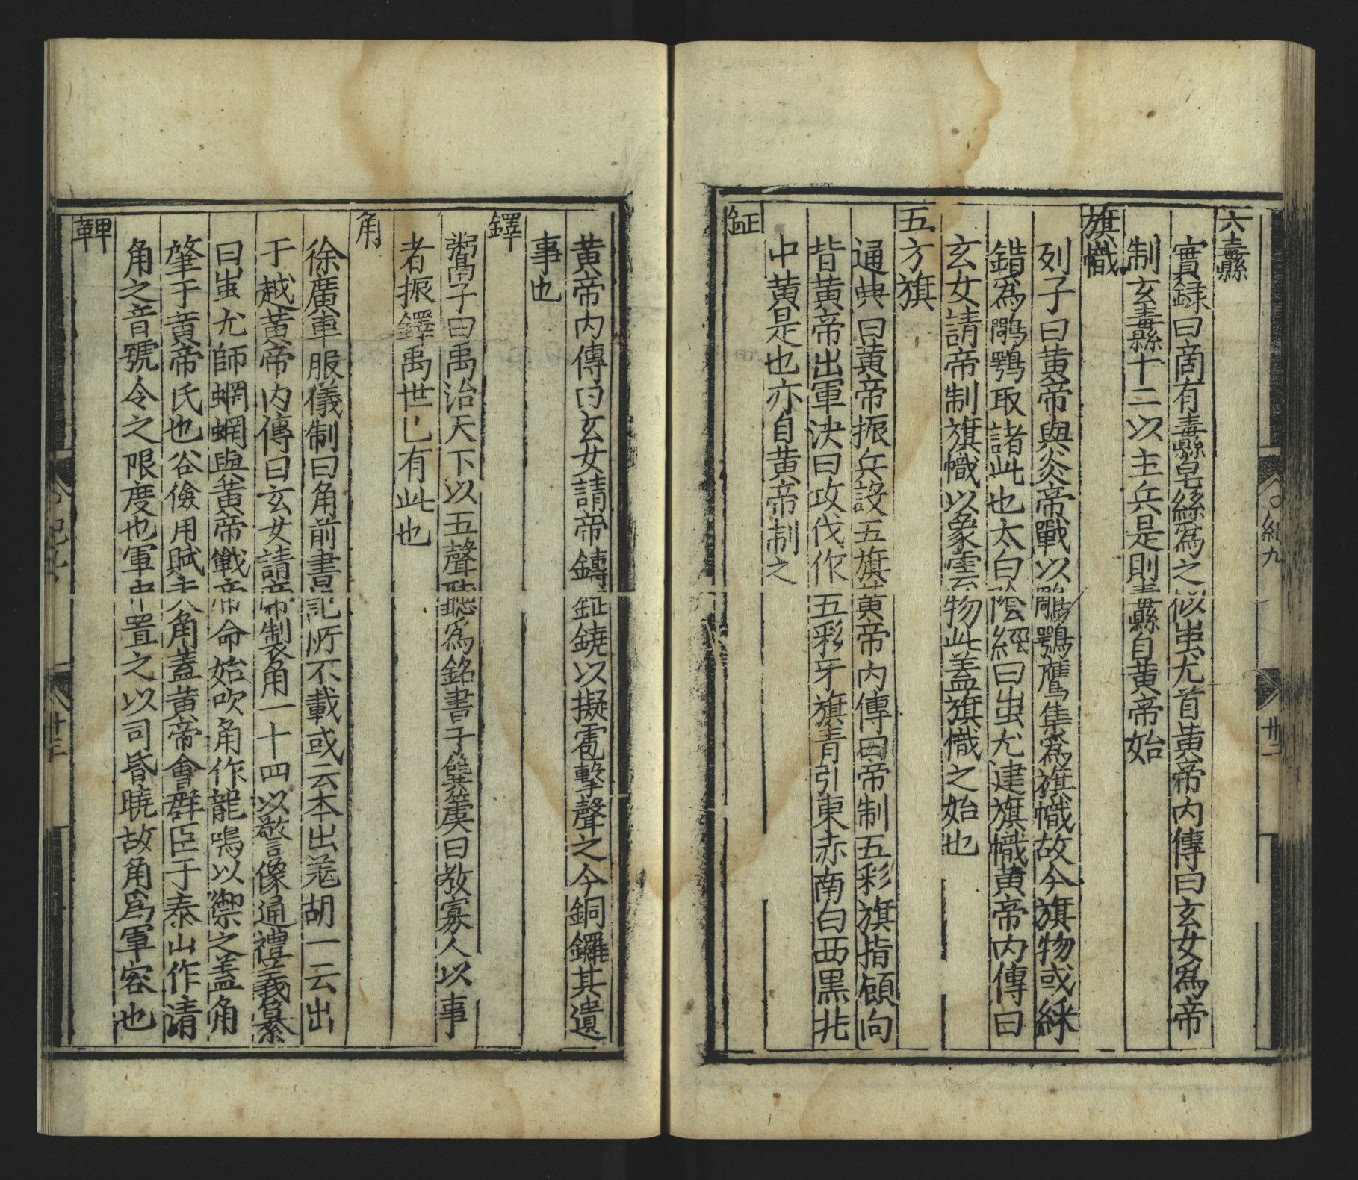 六纛
實録曰啇有纛皂絲爲之似蚩尤首黄帝内傳曰玄女爲帝
制玄纛十二以主兵是則纛自黄帝始
旗幟
列子曰黄帝與炎帝戰以鵰鶚鷹隼爲旗幟故今旗物或綵
錯爲鵰鶚取諸此也太白陰經曰蚩尤建旗幟黄帝内傳曰
玄女請帝制旗幟以象雲物此盖旗幟之始也
五方旗
通典曰黄帝振兵設五旗黄帝内傳曰帝制五彩旗指顧向
背黄帝出軍决曰攻伐作五彩牙旗青引東赤南白西黑北
中黄是也亦自黄帝制之
鉦
黄帝内傳曰玄女請帝鑄鉦鐃以擬雹擊聲之今銅鑼其遺
事也
鐸
鬻子曰禹治天下以五聲聽爲銘書于簨簴曰教寡人以事
者振鐸禹世已有此也
角
徐廣車服儀制曰角前書記所不載或云本出羗胡一云出
于越黄帝内傳曰玄女請帝製角二十四以警像通禮義纂
曰蚩尤師蝄蜽與黄帝戰帝命始吹角作龍鳴以禦之盖角
肇于黄帝氏也谷儉用賦
角之音號令之限度也軍中置之以司昏曉故角爲軍容也
鞞
紀九
卅二